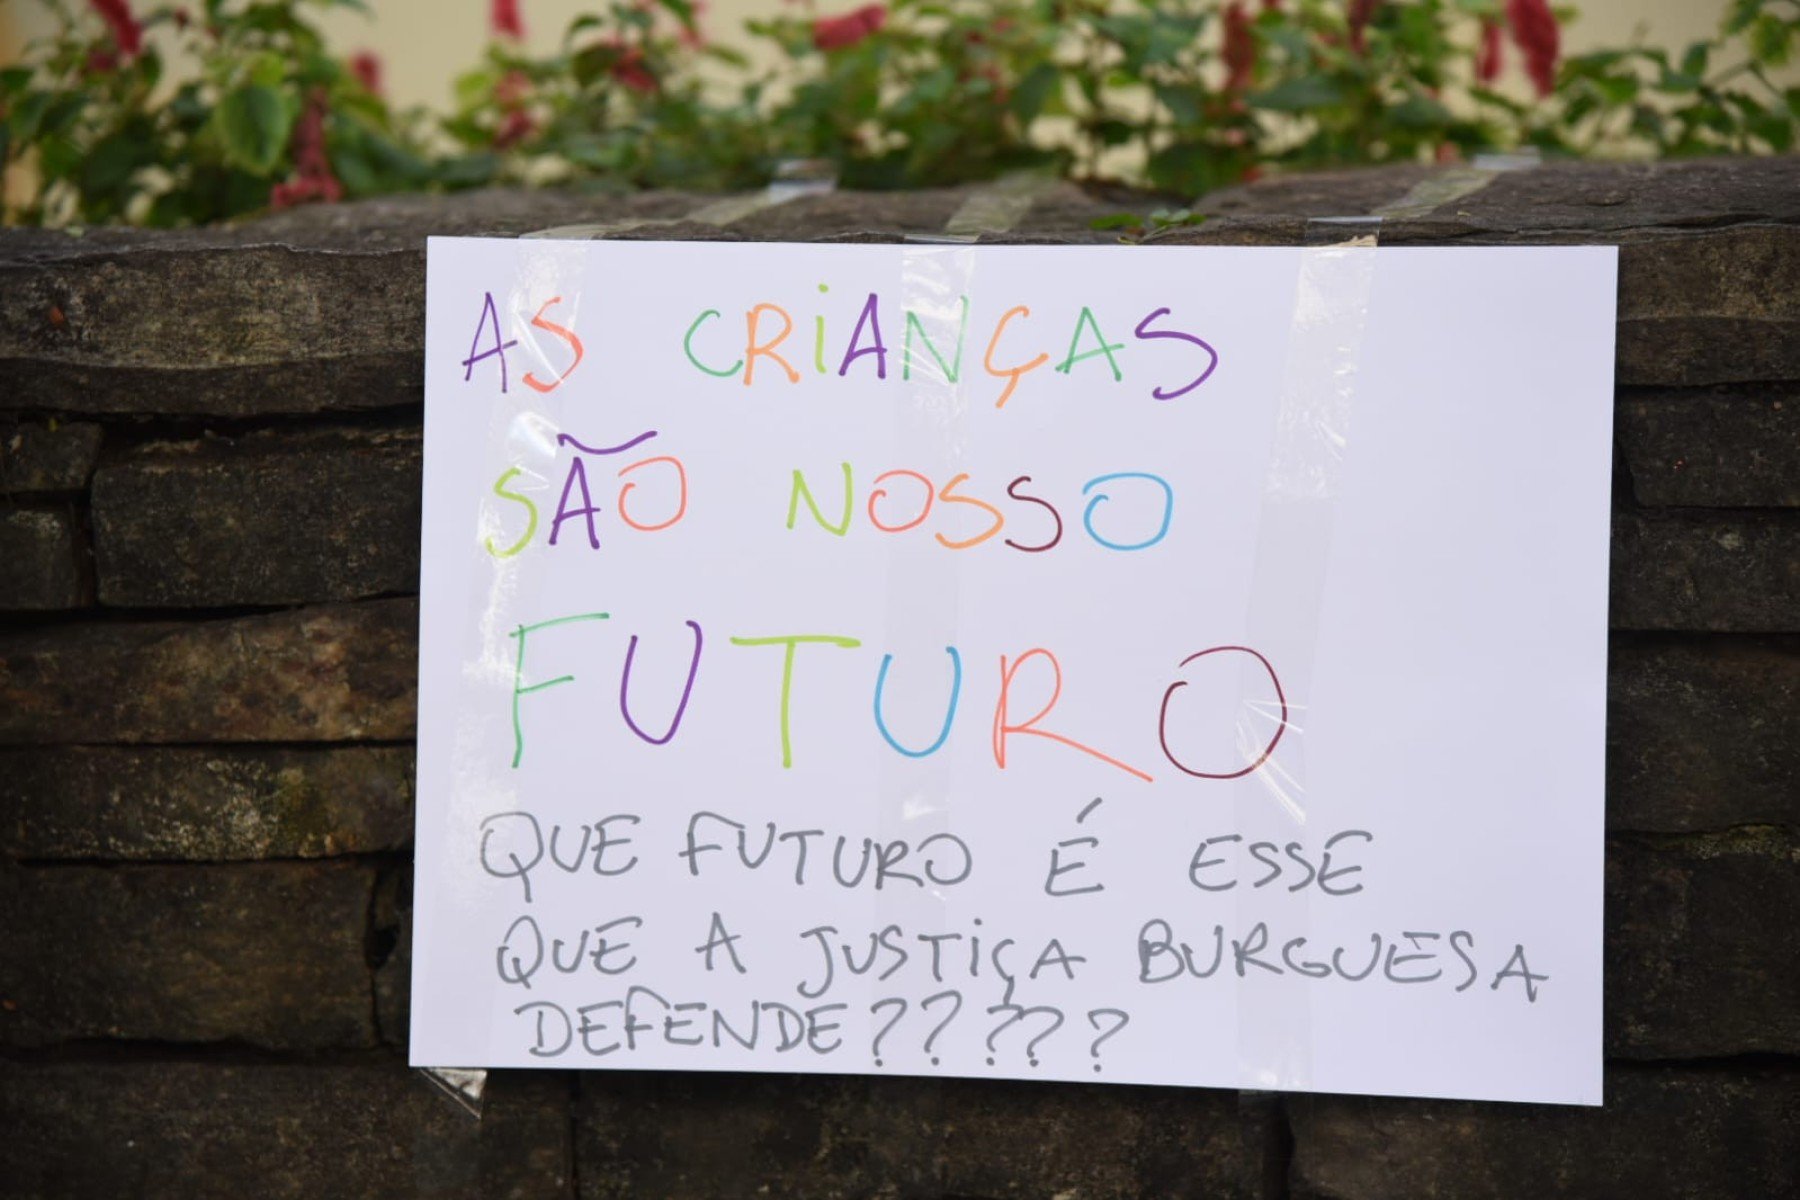 AS CRIANÇAS
SÃO NOSSO
FUTURO
QUE FUTURO É ESSE
QUE A JUSTIÇA BURGUESA
DEFENDE?????